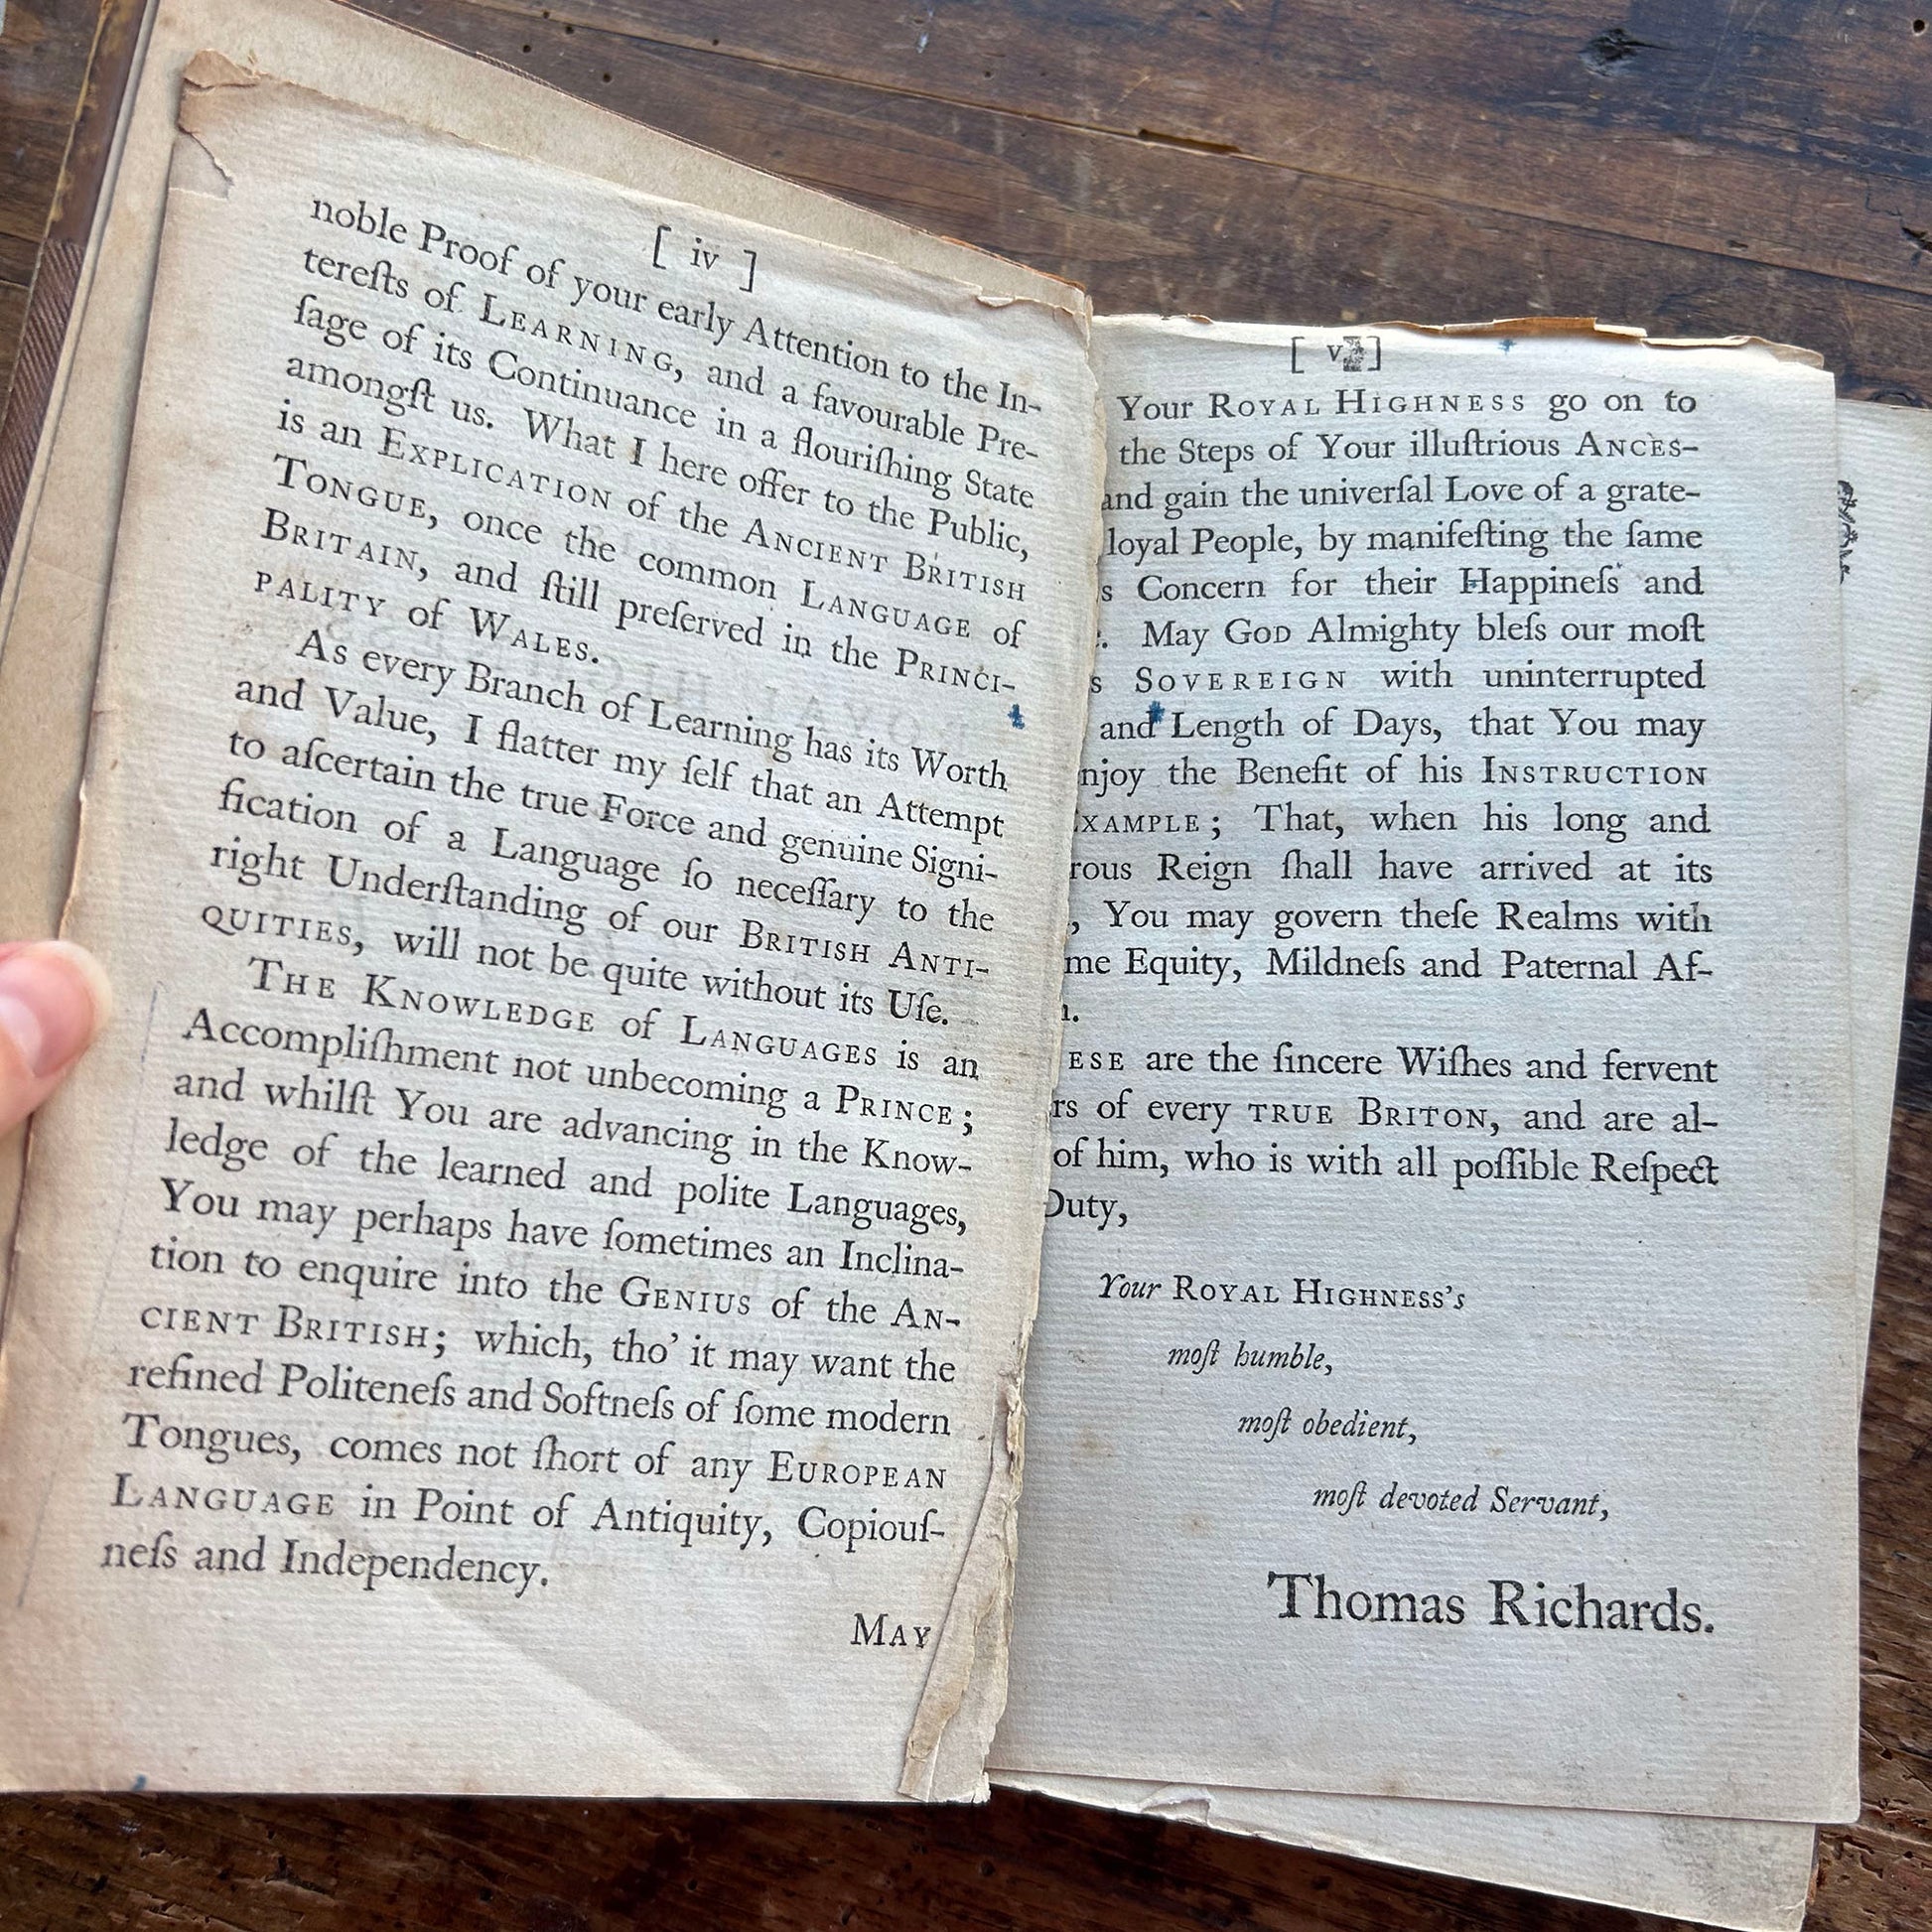 [ iv ]
noble Proof of your early Attention to the In-
tereſts of LEARNING, and a favourable Pre-
ſage of its Continuance in a flouriſhing State
amongſt us. What I here offer to the Public,
is an EXPLICATION of the ANCIENT BRITISH
TONGUE, once the common LANGUAGE of
BRITAIN, and ſtill preſerved in the PRINCI-
PALITY of WALES.
As every Branch of Learning has its Worth
and Value, I flatter my ſelf that an Attempt
to aſcertain the true Force and genuine Signi-
fication of a Language ſo neceſſary to the
right Underſtanding of our BRITISH ANTI-
QUITIES, will not be quite without its Uſe.
THE KNOWLEDGE of LANGUAGES is an
Accompliſhment not unbecoming a PRINCE;
and whilſt You are advancing in the Know-
ledge of the learned and polite Languages,
You may perhaps have ſometimes an Inclina-
tion to enquire into the GENIUS of the AN-
CIENT BRITISH; which, tho' it may want the
refined Politeneſs and Softneſs of ſome modern
Tongues, comes not ſhort of any EUROPEAN
LANGUAGE in Point of Antiquity, Copiouſ-
neſs and Independency.
MAY
[ v ]
Your ROYAL HIGHNESS go on to
the Steps of Your illuſtrious ANCES-
and gain the univerſal Love of a grate-
loyal People, by manifeſting the ſame
s Concern for their Happineſs and
. May GOD Almighty bleſs our moſt
s SOVEREIGN with uninterrupted
and Length of Days, that You may
njoy the Benefit of his INSTRUCTION
XAMPLE; That, when his long and
rous Reign ſhall have arrived at its
, You may govern theſe Realms with
me Equity, Mildneſs and Paternal Af-
n.
ESE are the ſincere Wiſhes and fervent
rs of every TRUE BRITON, and are al-
of him, who is with all poſſible Reſpect
Duty,
Your ROYAL HIGHNESS's
moſt humble,
moſt obedient,
moſt devoted Servant,
Thomas Richards.